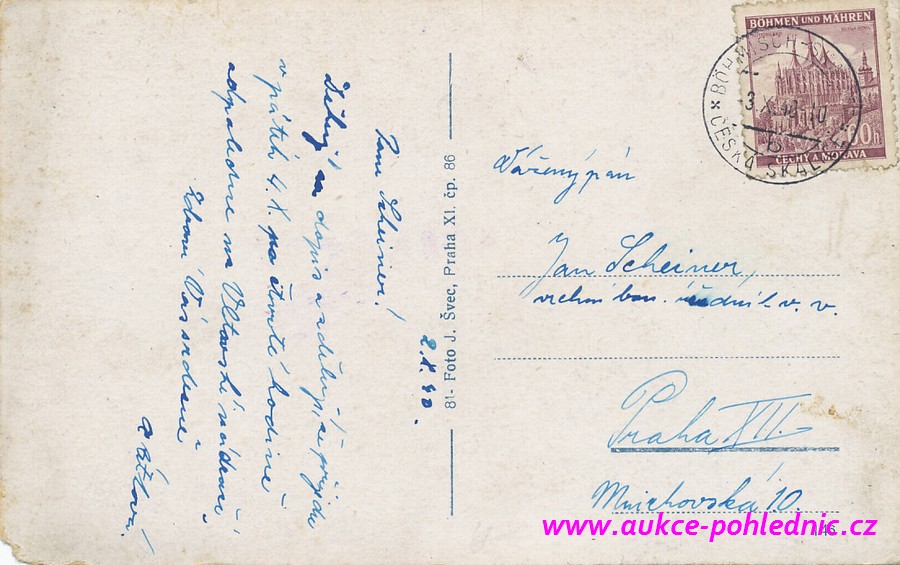 2.X.40.
Pane Scheiner!
Děkuji za dopis a sděluji, že přijedu
v pátek 4.X. po čtvrté hodině
odpoledne na Vltavské nádraží.
Zdraví Vás srdečně
81- Foto J. Švec, Praha XI. čp. 86
BÖHMEN UND MÄHREN
ČECHY A MORAVA
BÖHMISCH-
ČESKÁ SKAL
3.X.
Vážený pán
Jan Scheiner,
vrchní ban. úředník v. v.
Praha XII.
Mnichovská 10.
www.aukce-pohlednic.cz